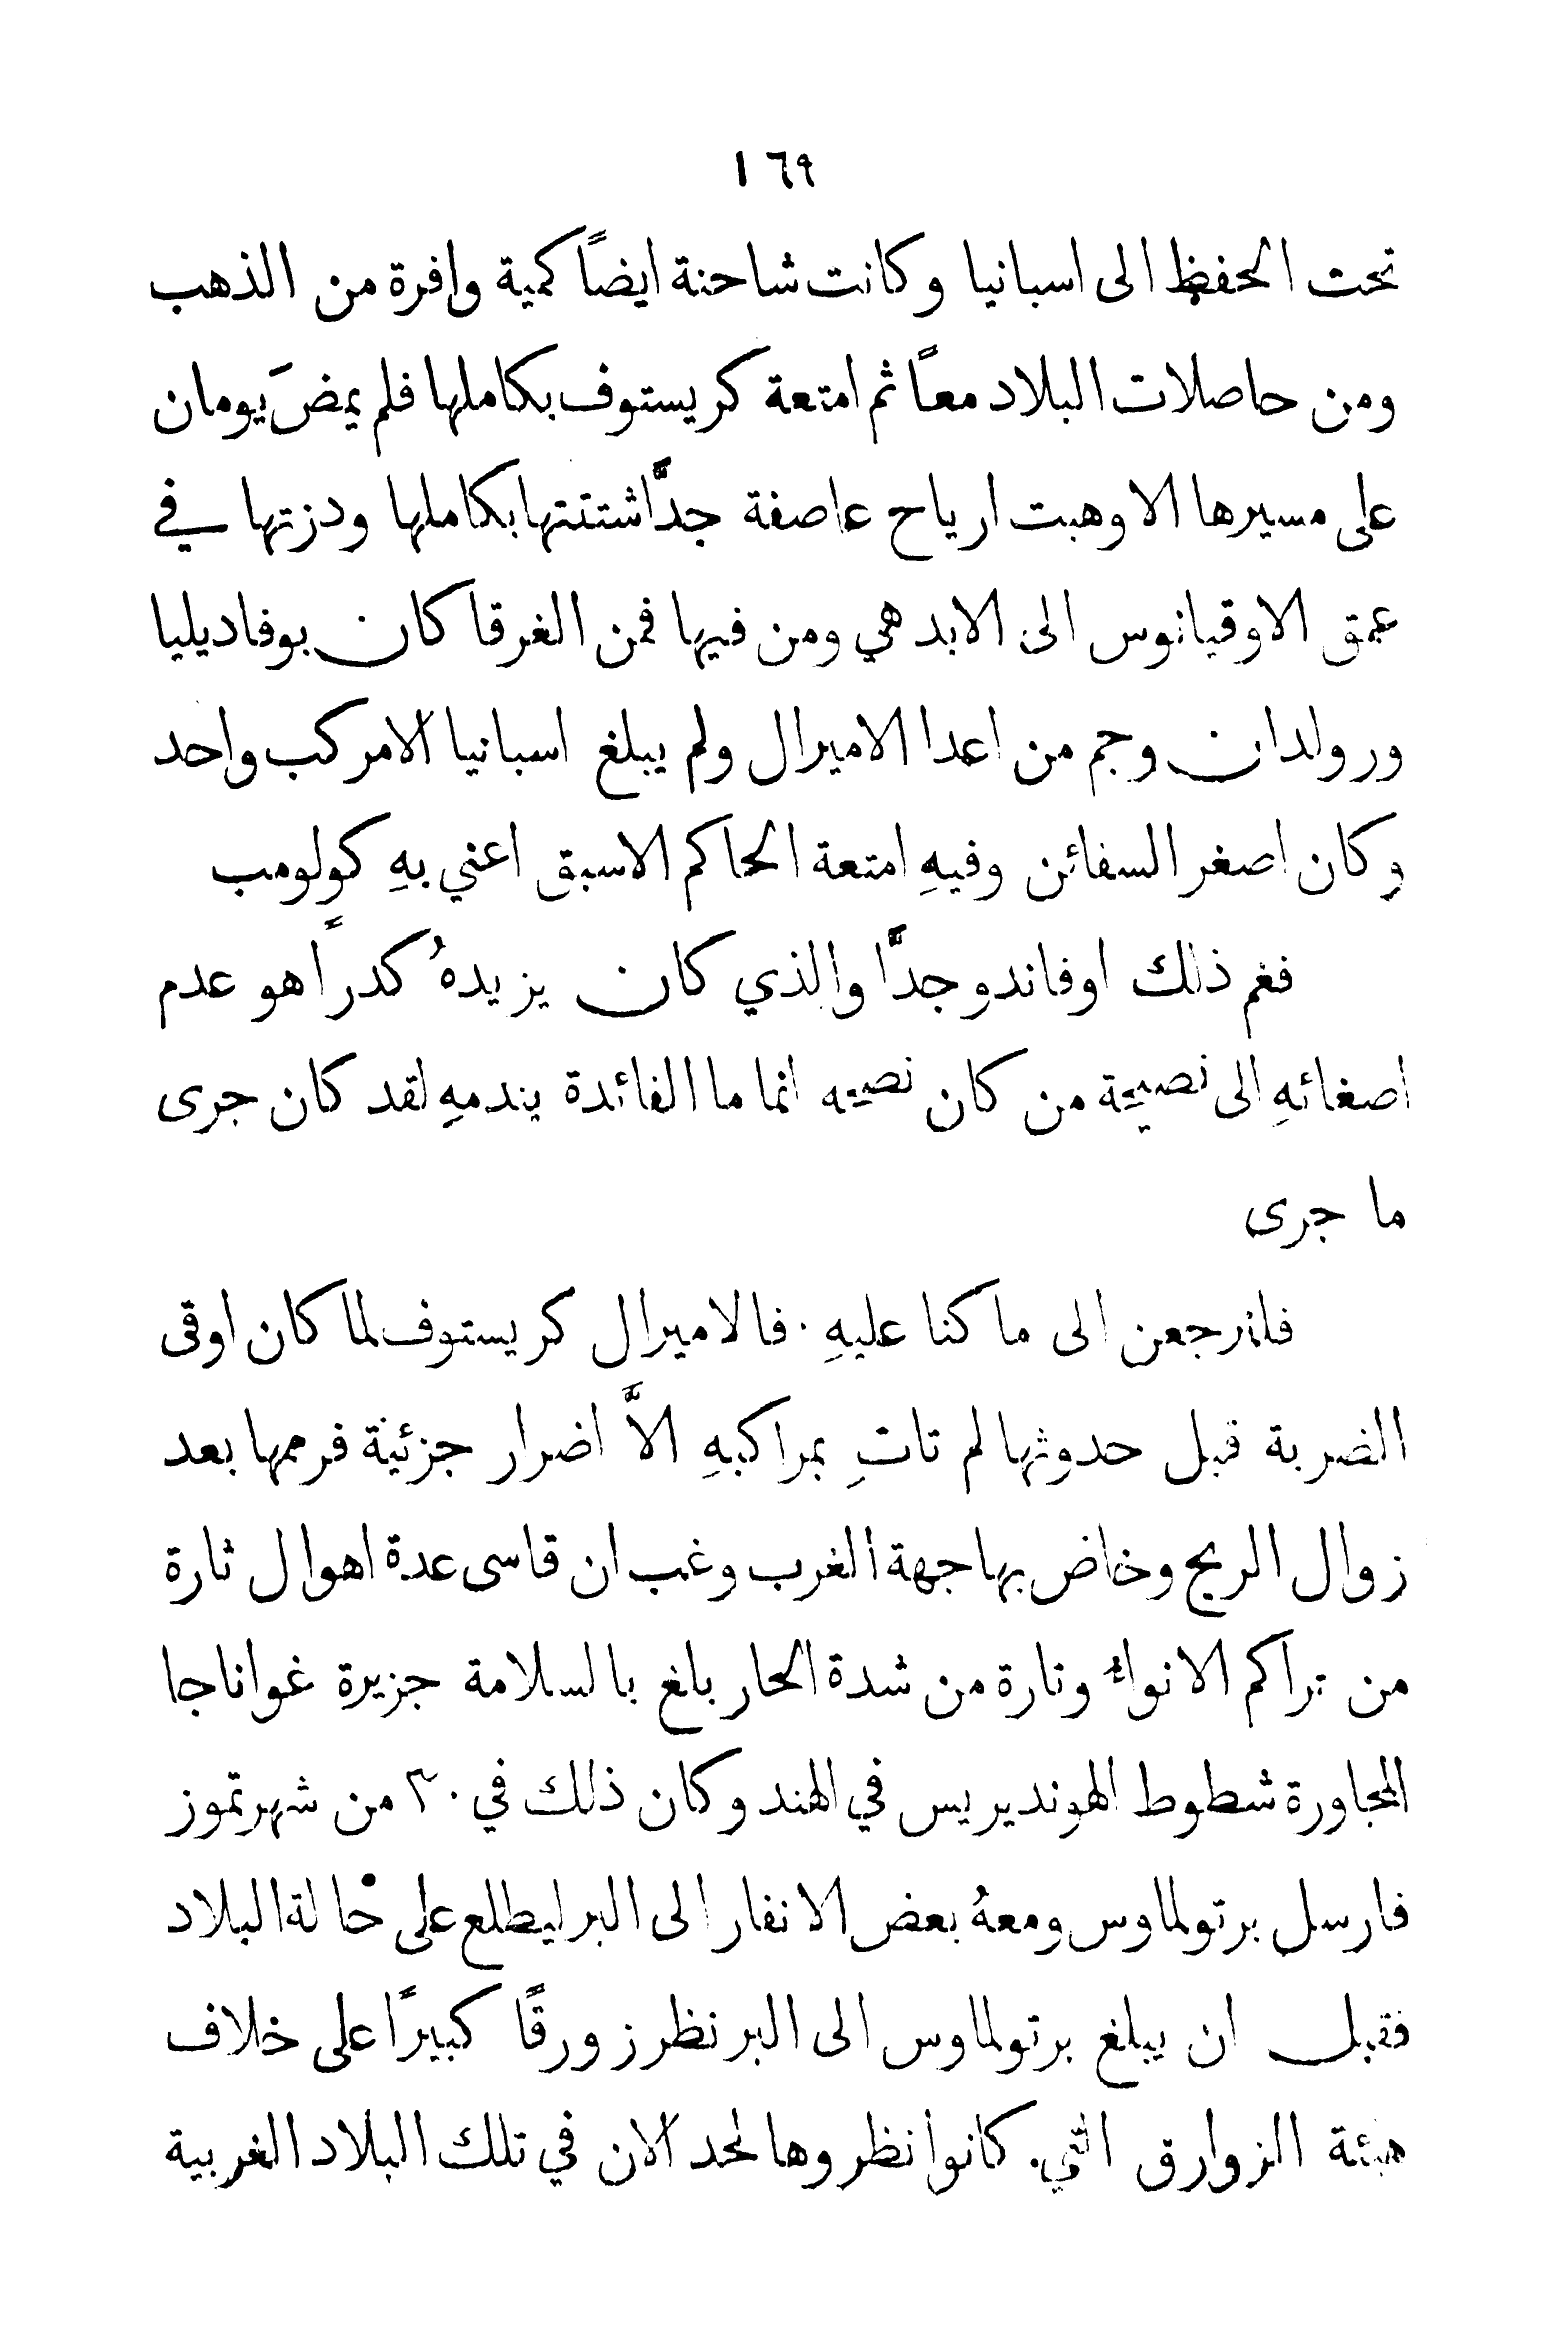 ١٦٩
تحت الحفظ الى اسبانيا وكانت شاحنة ايضًا كمية وافرة من الذهب
ومن حاصلات البلاد معًا ثم امتعة كريستوف بكاملها فلم يمضَ يومان
على مسيرها الا وهبت ارياح عاصفة جدًّا شتتتها بكاملها ودزتها في
عمق الاوقيانوس الى الابد هي ومن فيها فمن الغرقا كان بوفاديليا
ورولدان وجم من اعدا الاميرال ولم يبلغ اسبانيا الا مركب واحد
وكان اصغر السفائن وفيهِ امتعة الحاكم الاسبق اعني بهِ كولومب
فغم ذلك اوفاندو جدًّا والذي كان يزيدهُ كدرًا هو عدم
اصغائهِ الى نصيحة من كان نصحه انما ما الفائدة يندمهِ لقد كان جرى
ما جرى
فلنرجعن الى ما كنا عليهِ. فالاميرال كريستوف لما كان اوقى
الضربة قبل حدوثها لم تاتِ بمراكبهِ الاَّ اضرار جزئية فرممها بعد
زوال الريح وخاض بها جهة الغرب وغب ان قاسى عدة اهوال ثارة
من تراكم الانواء وتارة من شدة الحار بلغ بالسلامة جزيرة غواناجا
المجاورة شطوط الهونديريس في الهند وكان ذلك في ٣٠ من شهر تموز
فارسل برتولماوس ومعهُ بعض الانفار الى البر ليطلع على حالة البلاد
فقبل ان يبلغ برتولماوس الى البر نظر زورقًا كبيرًا على خلاف
هيئة الزوارق التي كانوا نظروها لحد الان في تلك البلاد الغربية